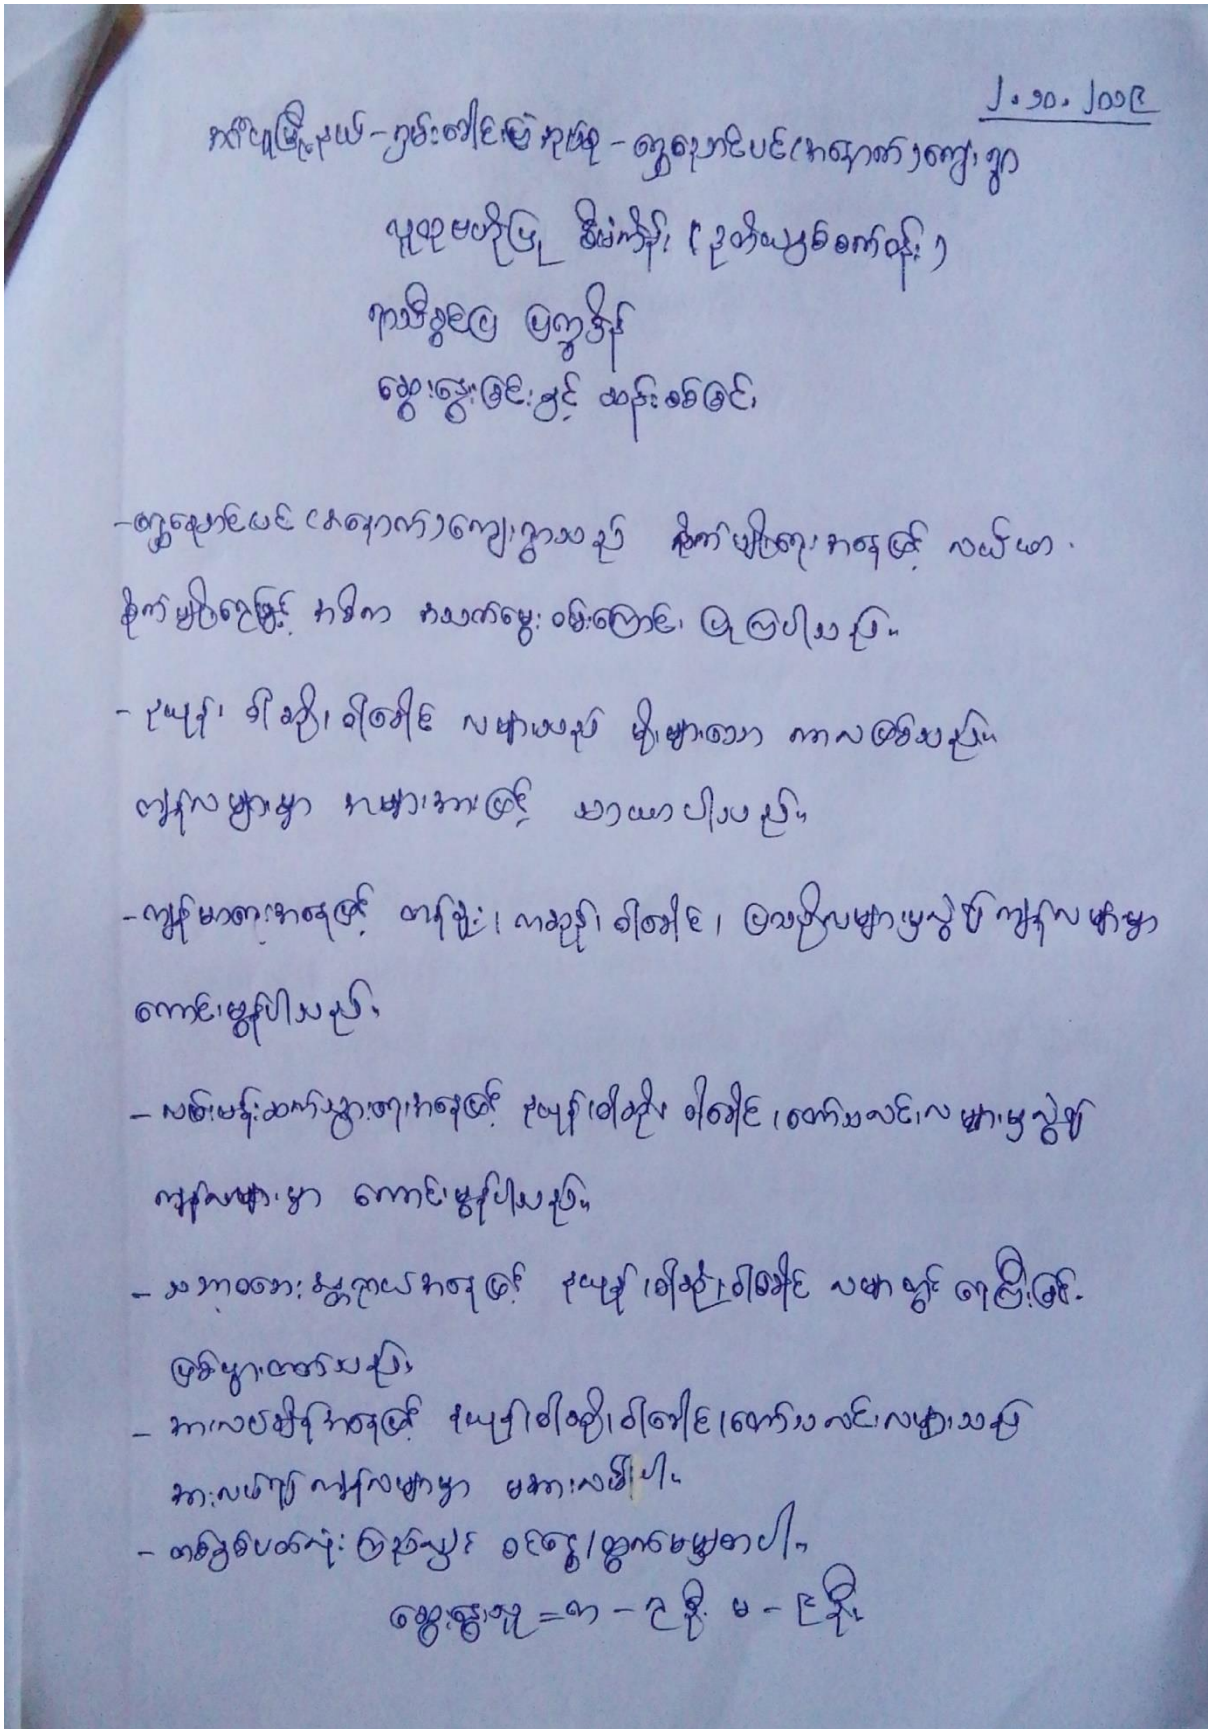 ၂.၁၀.၂၀၁၉
အင်္ဂပူမြို့နယ် - ရှမ်းခေါင်းပြဲအုပ်စု - ရွှေညောင်ပင်(အနောက်)ကျေးရွာ
လူထုဗဟိုပြု စီမံကိန်း (ဒုတိယနှစ်စက်ဝန်း)
ရာသီခွင်ပြ ပြက္ခဒိန်
ဆွေးနွေးခြင်းနှင့် ဆန်းစစ်ခြင်း
- ရွှေညောင်ပင် (အနောက်)ကျေးရွာသည် စိုက်ပျိုးရေးအနေဖြင့် လယ်ယာ
စိုက်ပျိုးရေးဖြင့် အဓိက အသက်မွေးဝမ်းကြောင်း ပြုကြပါသည်။
- နယုန်၊ ဝါဆို၊ ဝါခေါင် လများသည် မိုးများသော ကာလဖြစ်သည်။
ကျန်လများမှာ အများအားဖြင့် သာယာပါသည်။
- ကျန်းမာရေးအနေဖြင့် တန်ခူး၊ ကဆုန်၊ ဝါခေါင်၊ ပြာသိုလများမှလွဲ၍ ကျန်လများမှာ
ကောင်းမွန်ပါသည်။
- လမ်းပန်းဆက်သွယ်ရေးအနေဖြင့် နယုန်၊ ဝါဆို၊ ဝါခေါင်၊ တော်သလင်းလများမှလွဲ၍
ကျန်လများမှာ ကောင်းမွန်ပါသည်။
- သဘာဝဘေးအန္တရာယ်အနေဖြင့် နယုန်၊ ဝါဆို၊ ဝါခေါင် လများတွင် ရေကြီးခြင်း
ဖြစ်ပွားတတ်သည်။
- အားလပ်ချိန်အနေဖြင့် နယုန်၊ ဝါဆို၊ ဝါခေါင်၊ တော်သလင်းလများသည်
အားလပ်၍ ကျန်လများမှာ မအားလပ်ပါ။
- တစ်နှစ်ပတ်လုံး ကြည့်လျှင် ဝင်ငွေ/ထွက်ငွေမျှတပါ။
ဆွေးနွေးသူ = ကျား - ၇ဦး မ - ၉ဦး